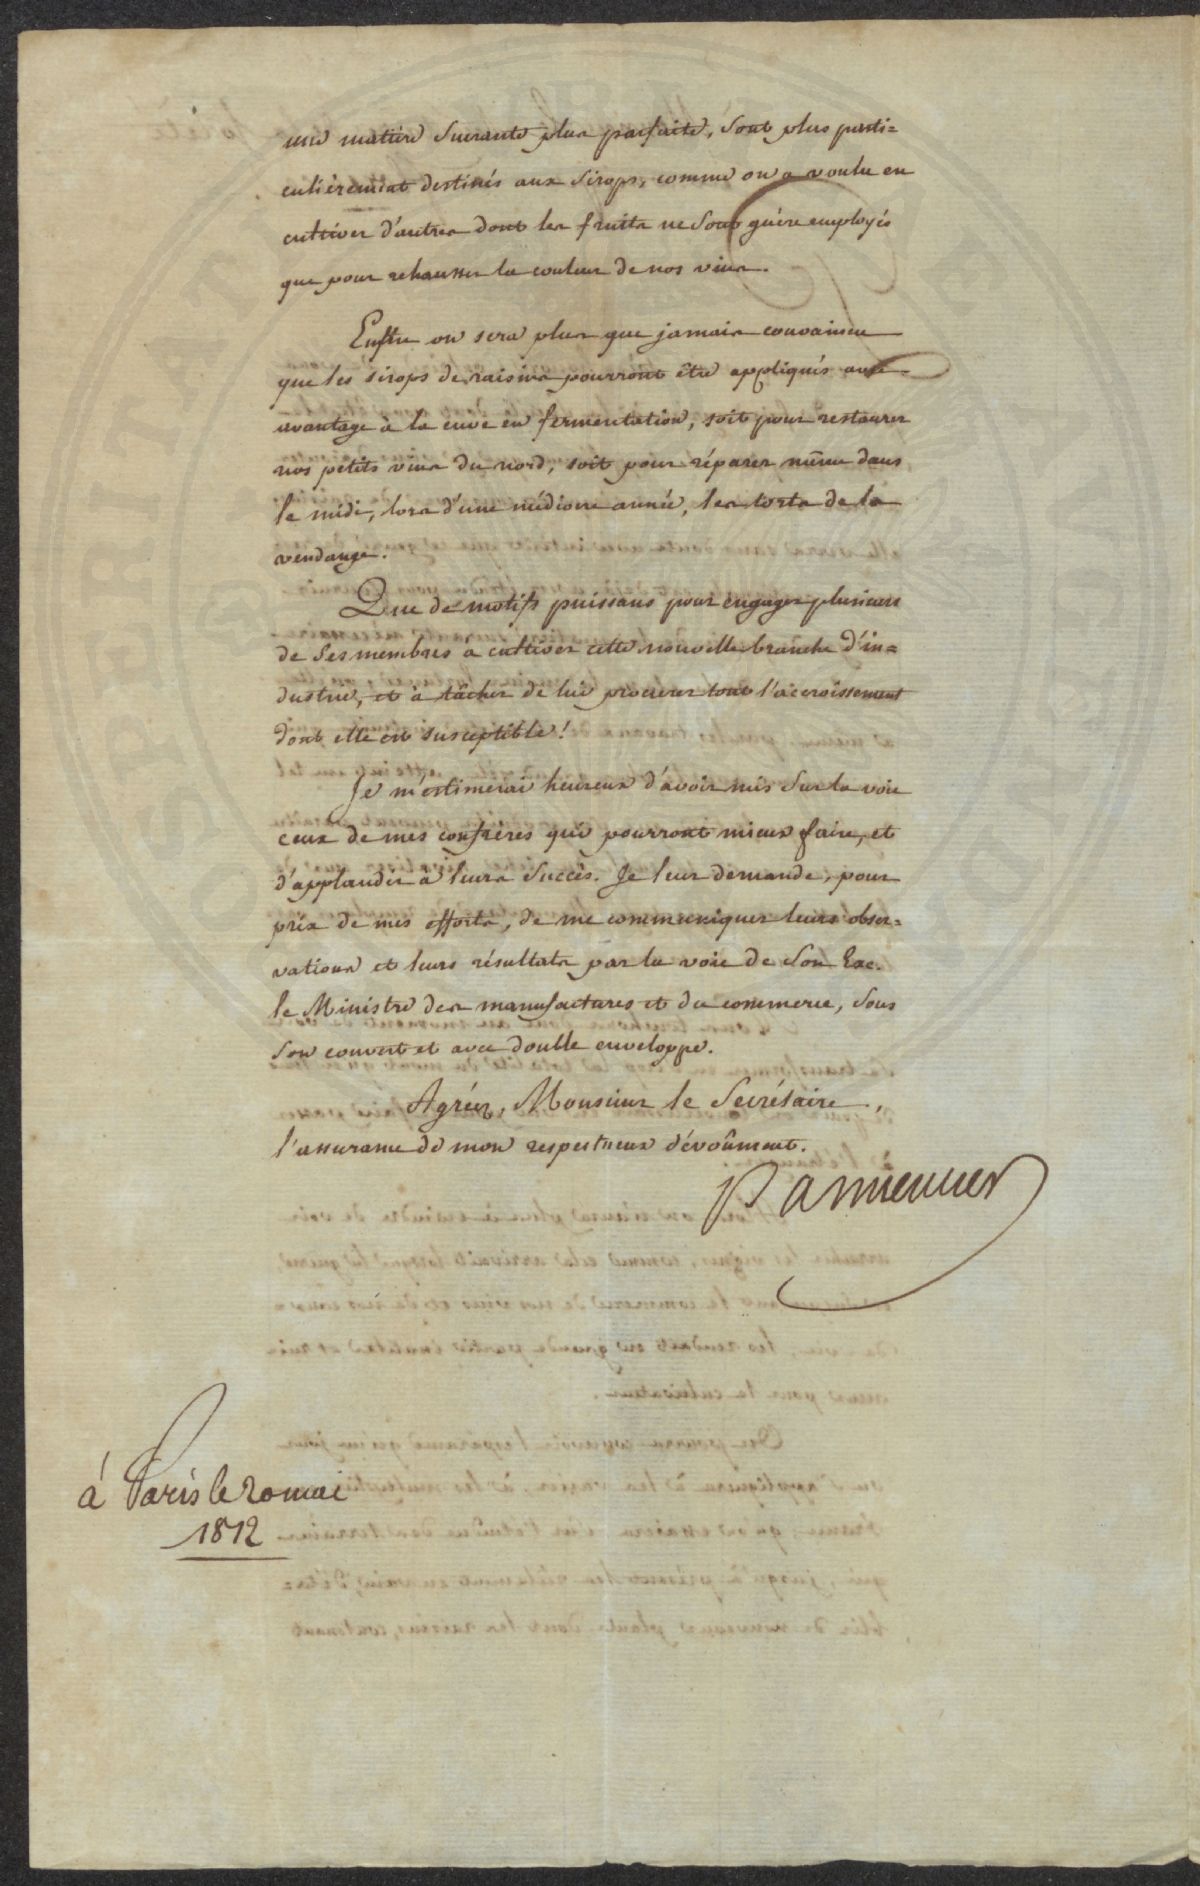 une matière sucrante plus parfaite, sont plus parti=
culièrement destinés aux sirops, comme on a voulu en
cultiver d'autres dont les fruits ne sont guère employés
que pour rehausser la couleur de nos vins.
Enfin on sera plus que jamais convaincu
que les sirops de raisins pourront être appliqués avec
avantage à la cuve en fermentation, soit pour restaurer
nos petits vins du nord, soit pour réparer même dans
le midi, lors d'une médiocre année, les torts de la
vendange.
Que de motifs puissans pour engager plusieurs
de ses membres à cultiver cette nouvelle branche d'in=
dustrie, et à tâcher de lui procurer tout l'accroissement
dont elle est susceptible!
Je m'estimerai heureux d'avoir mis sur la voie
ceux de mes confrères qui pourront mieux faire, et
d'applaudir à leurs succès. Je leur demande, pour
prix de mes efforts, de me communiquer leurs obser=
vations et leurs résultats par la voie de Son Exc.
le Ministre des manufactures et du commerce, sous
son couvert et avec double enveloppe.
Agréez, Monsieur le Secrétaire,
l'assurance de mon respectueux dévoûment.
Parmentier
à Paris le 20 mai
1812